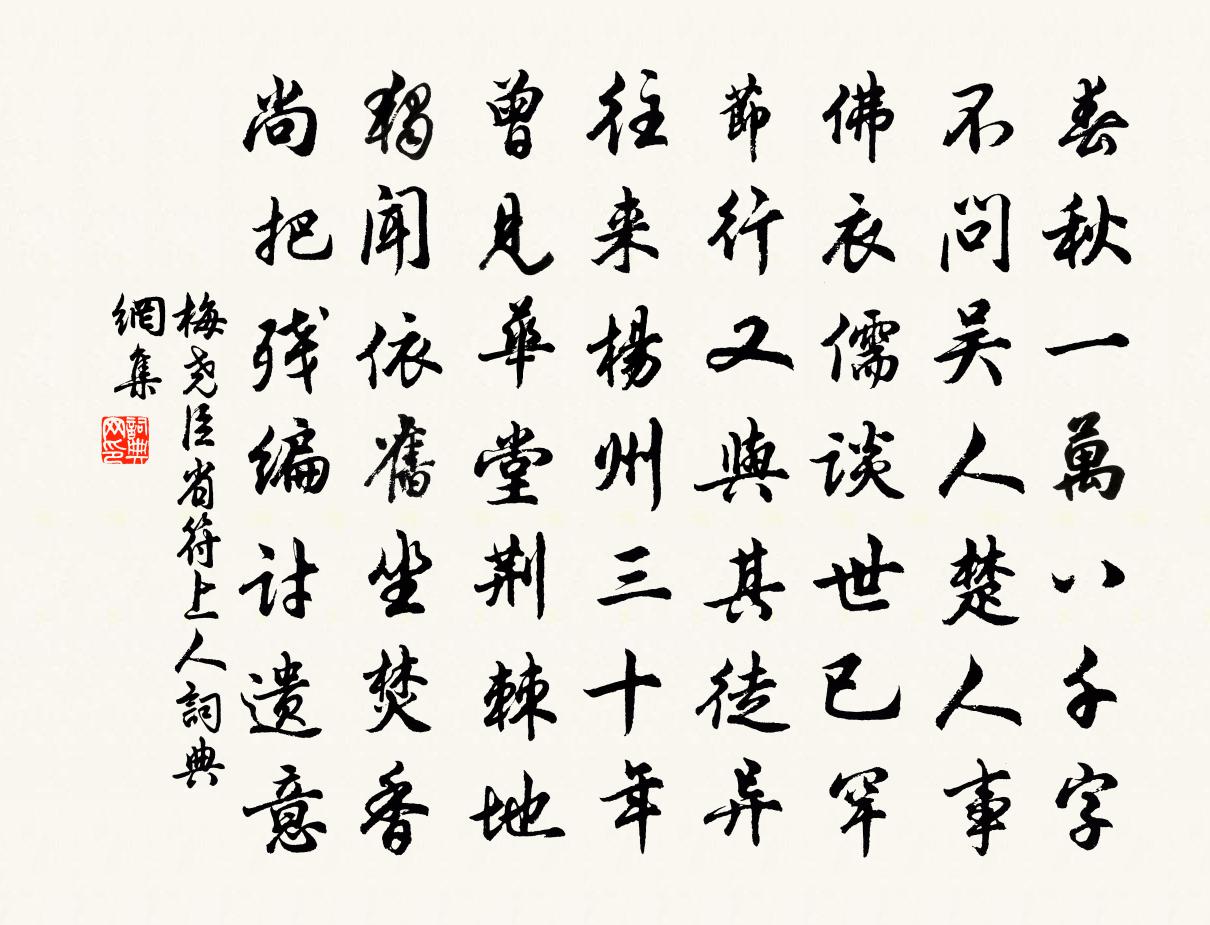 春秋一萬八千字
不問吴人楚人事
佛衣儒談世已罕
節行又與其徒异
往来楊州三十年
曾見華堂荆棘地
独聞依舊坐焚香
尚把残编討遗意
梅尧臣省符上人詞典
網集
詞典
网印